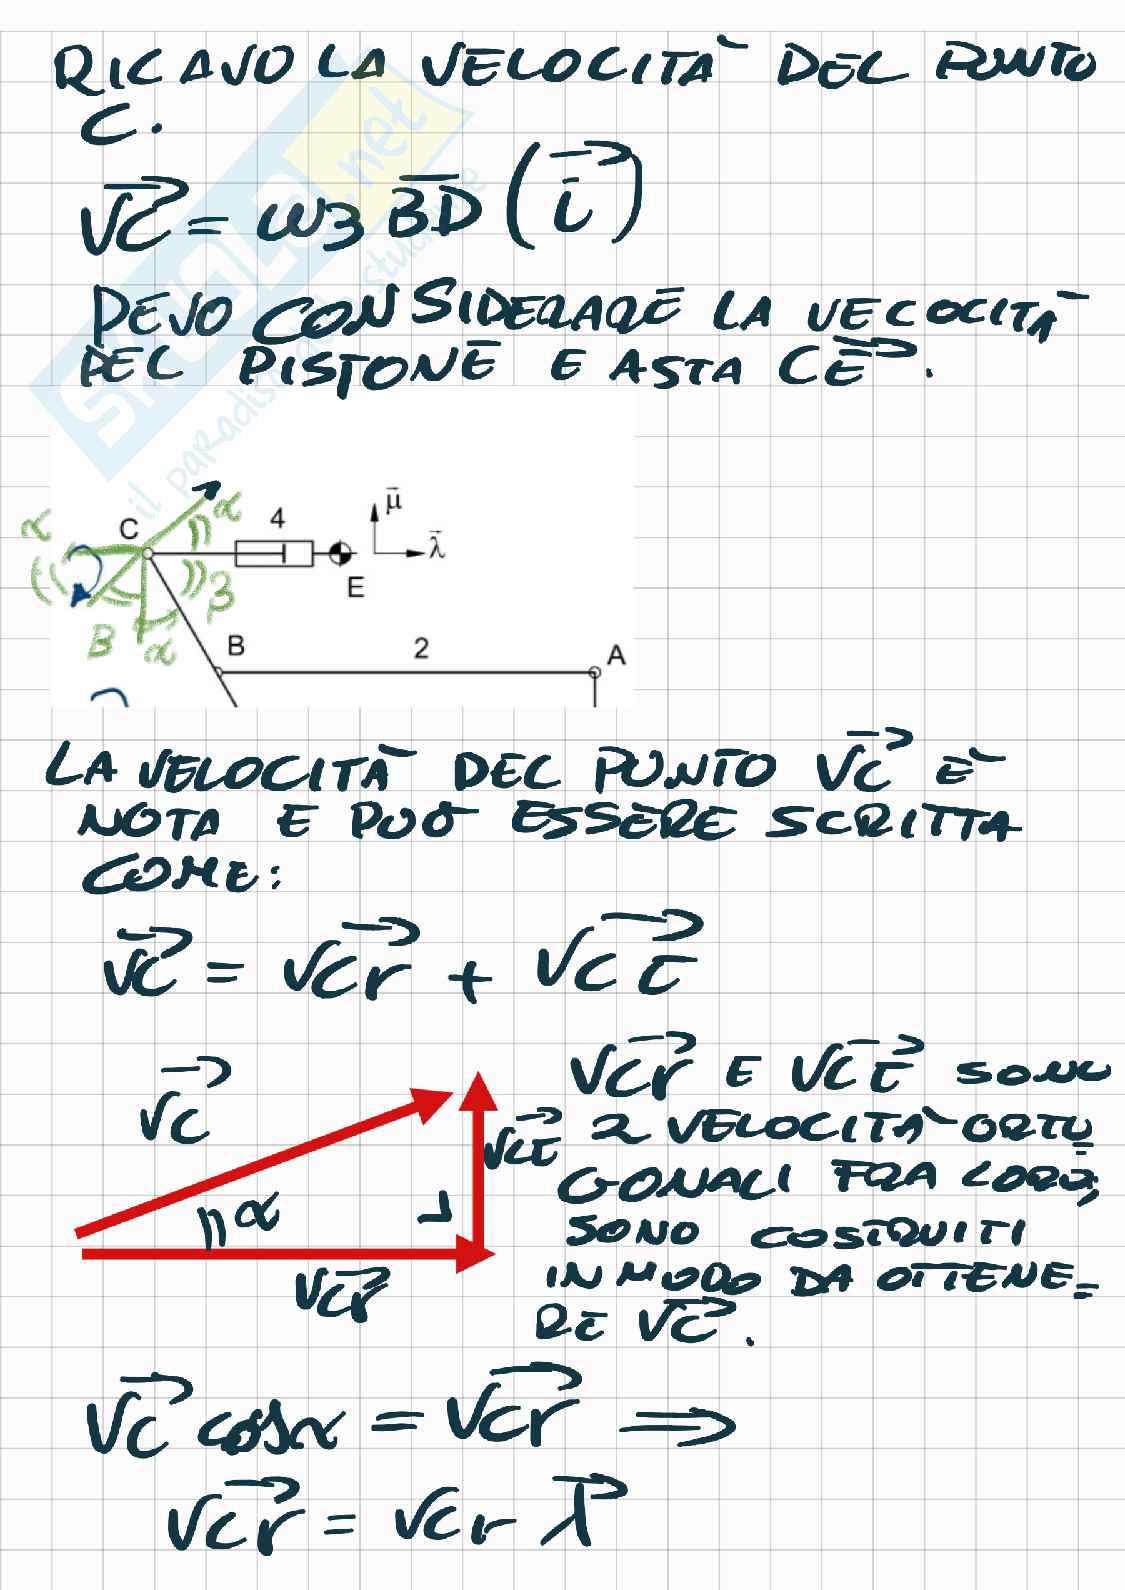 RICAVO LA VELOCITÀ DEL PUNTO
C.
VC = ω3 BD (i)
DEVO CONSIDERARE LA VELOCITÀ
DEL PISTONE E ASTA CE.
SKUOLA.net
il paradiso dello studente
α
C
α
4
μ
λ
E
β
B
α
B
2
A
LA VELOCITÀ DEL PUNTO VC È
NOTA E PUÒ ESSERE SCRITTA
COME:
VC = VCr + VCt
VC
VCt
α
VCr
VCr E VCt SONO
2 VELOCITÀ ORTO=
GONALI FRA LORO,
SONO COSTRUITI
IN MODO DA OTTENE=
RE VC.
VC cosα = VCr ⇒
VCr = VCr λ